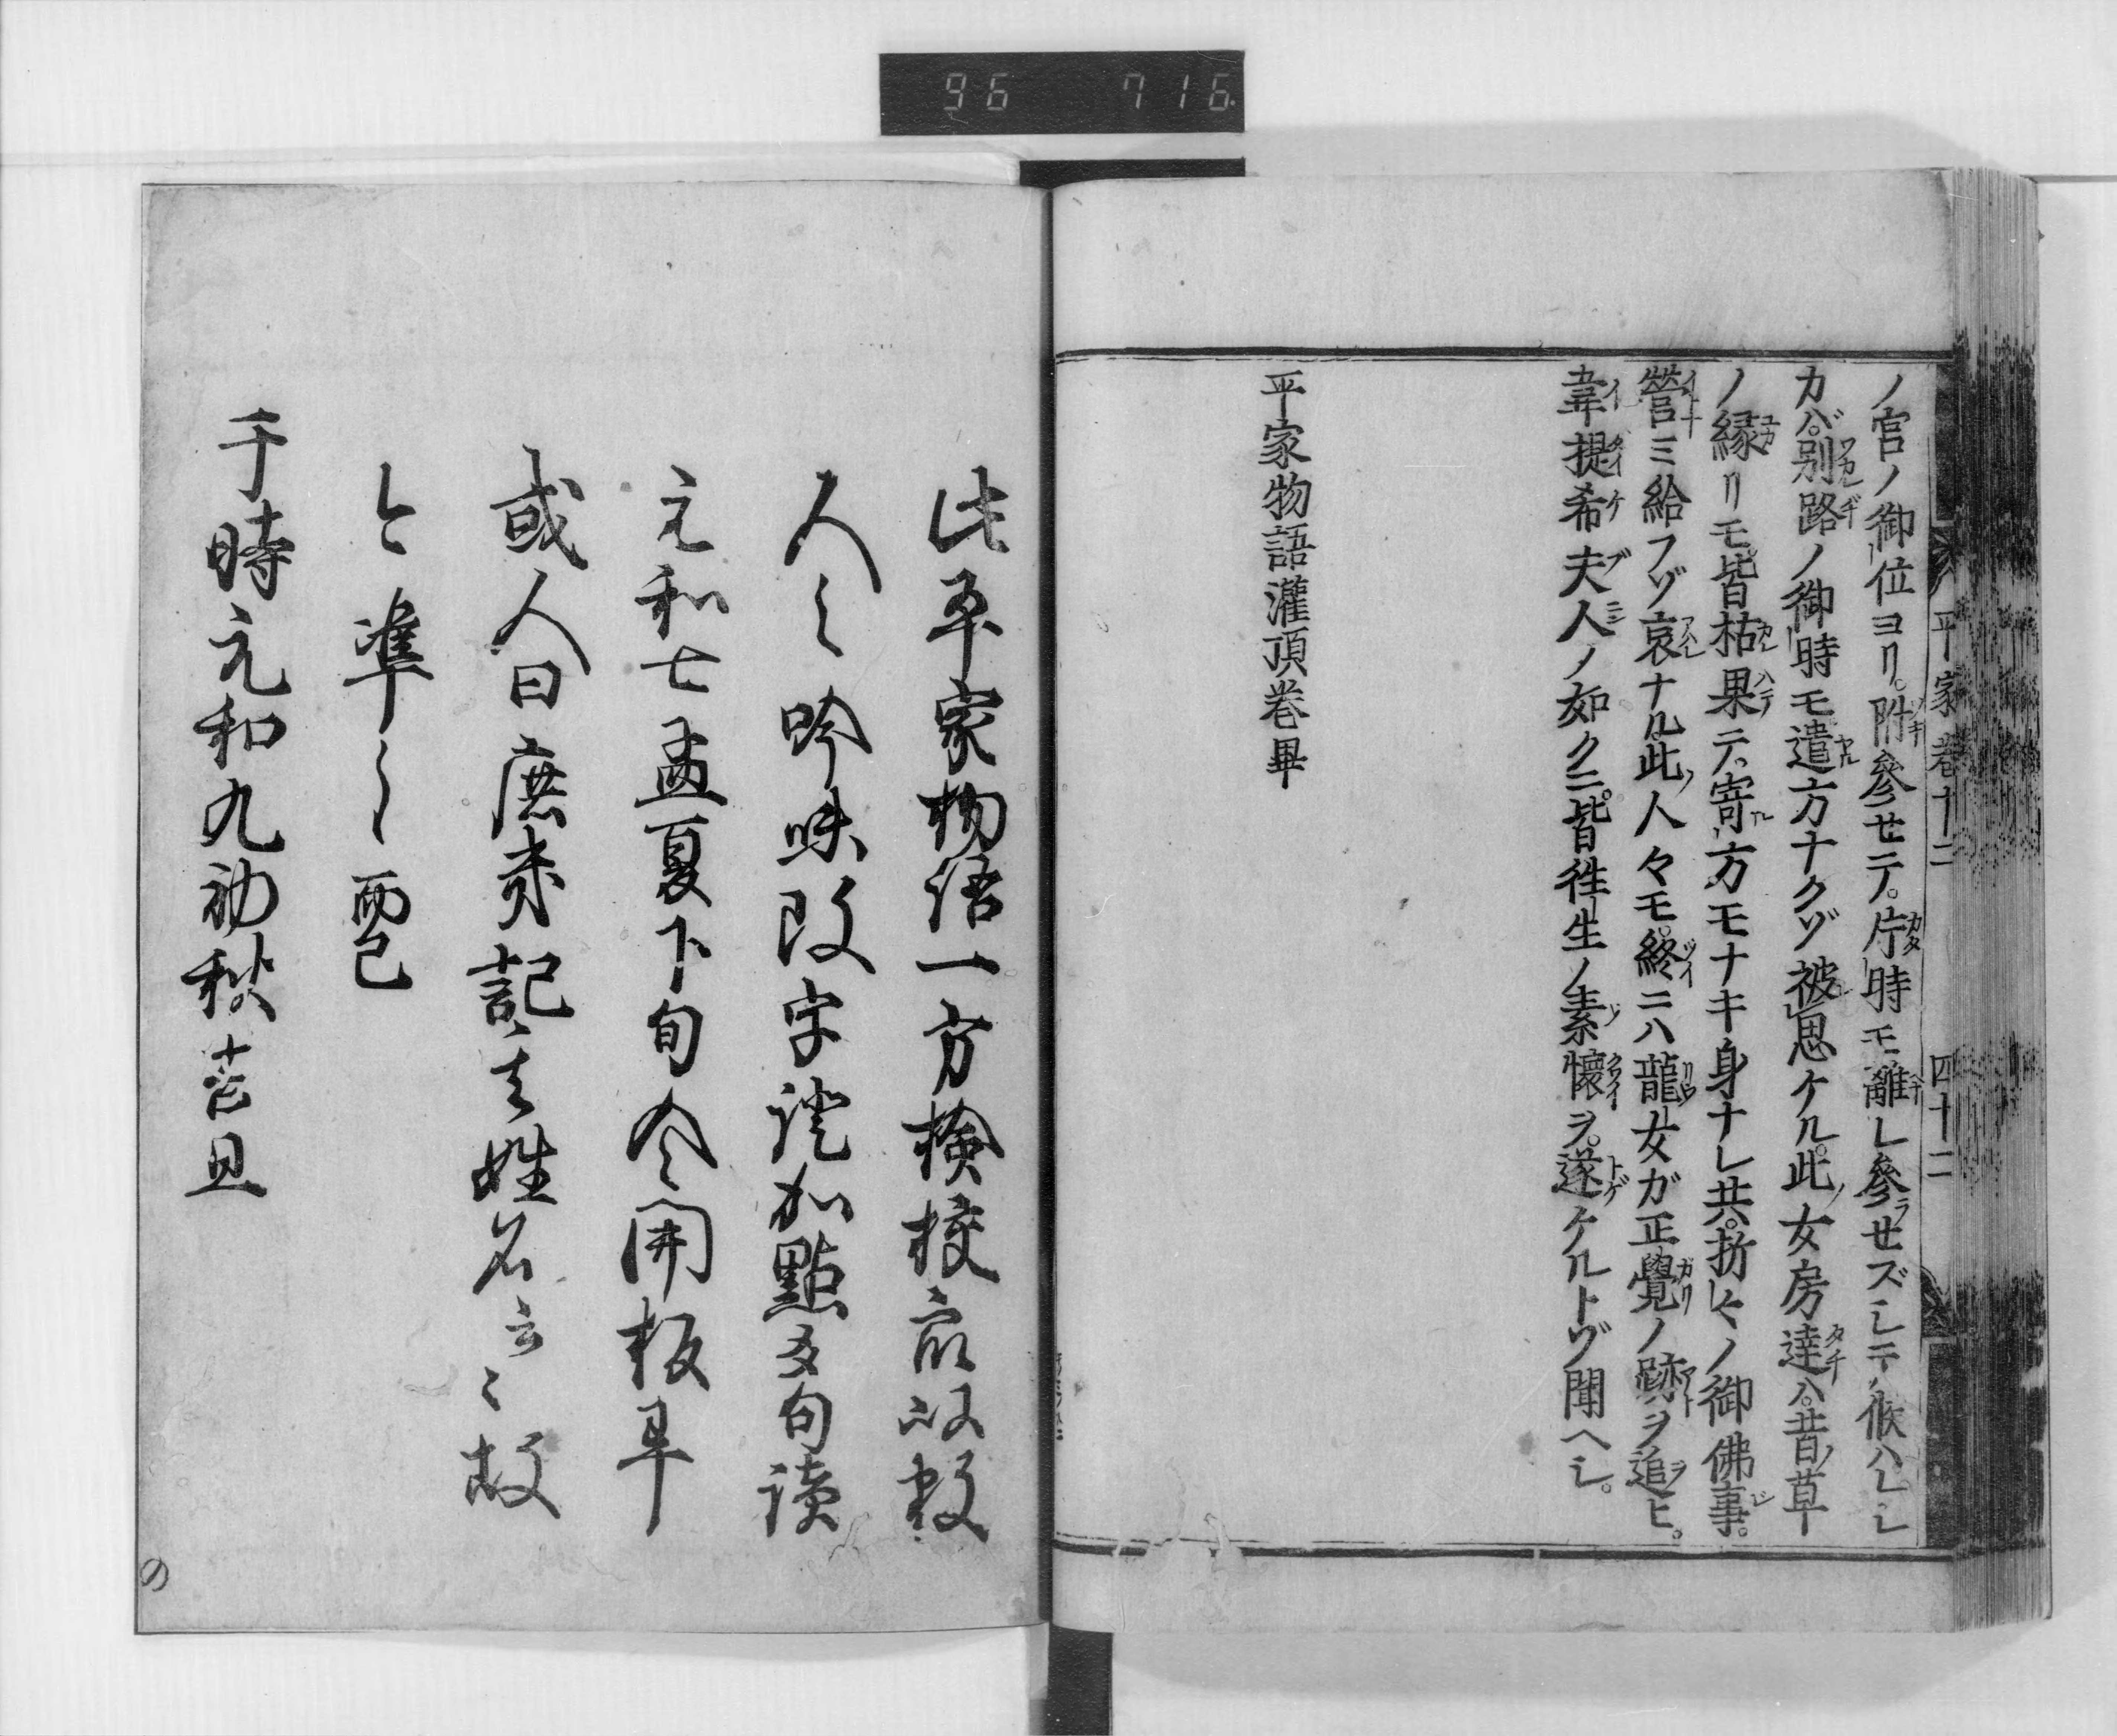 96 716
ノ宮ノ御位ヨリ。附參セテ。片時モ離レ參セズシテ候ハレシ
カバ。別路ノ御時モ遣方ナクゾ被思ケル。此女房達ハ。昔ノ草
ノ縁リモ皆枯果テ、寄方モナキ身ナレ共。折々ノ御佛事。
營ミ給フゾ哀ナル。此人々モ。終ニハ龍女ガ正覺ノ跡ヲ追ヒ。
韋提希夫人ノ如クニ。皆往生ノ素懷ヲ。遂ケルトゾ聞ヘシ。
平家物語灌頂卷畢
平家卷十二
四十二
此平家物語一方檢校衆以数
人之吟味改字證加點交句読
元和七孟夏下旬令開板畢
或人曰庶幾記其姓名云々故
今準之而已
于時元和九初秋吉旦